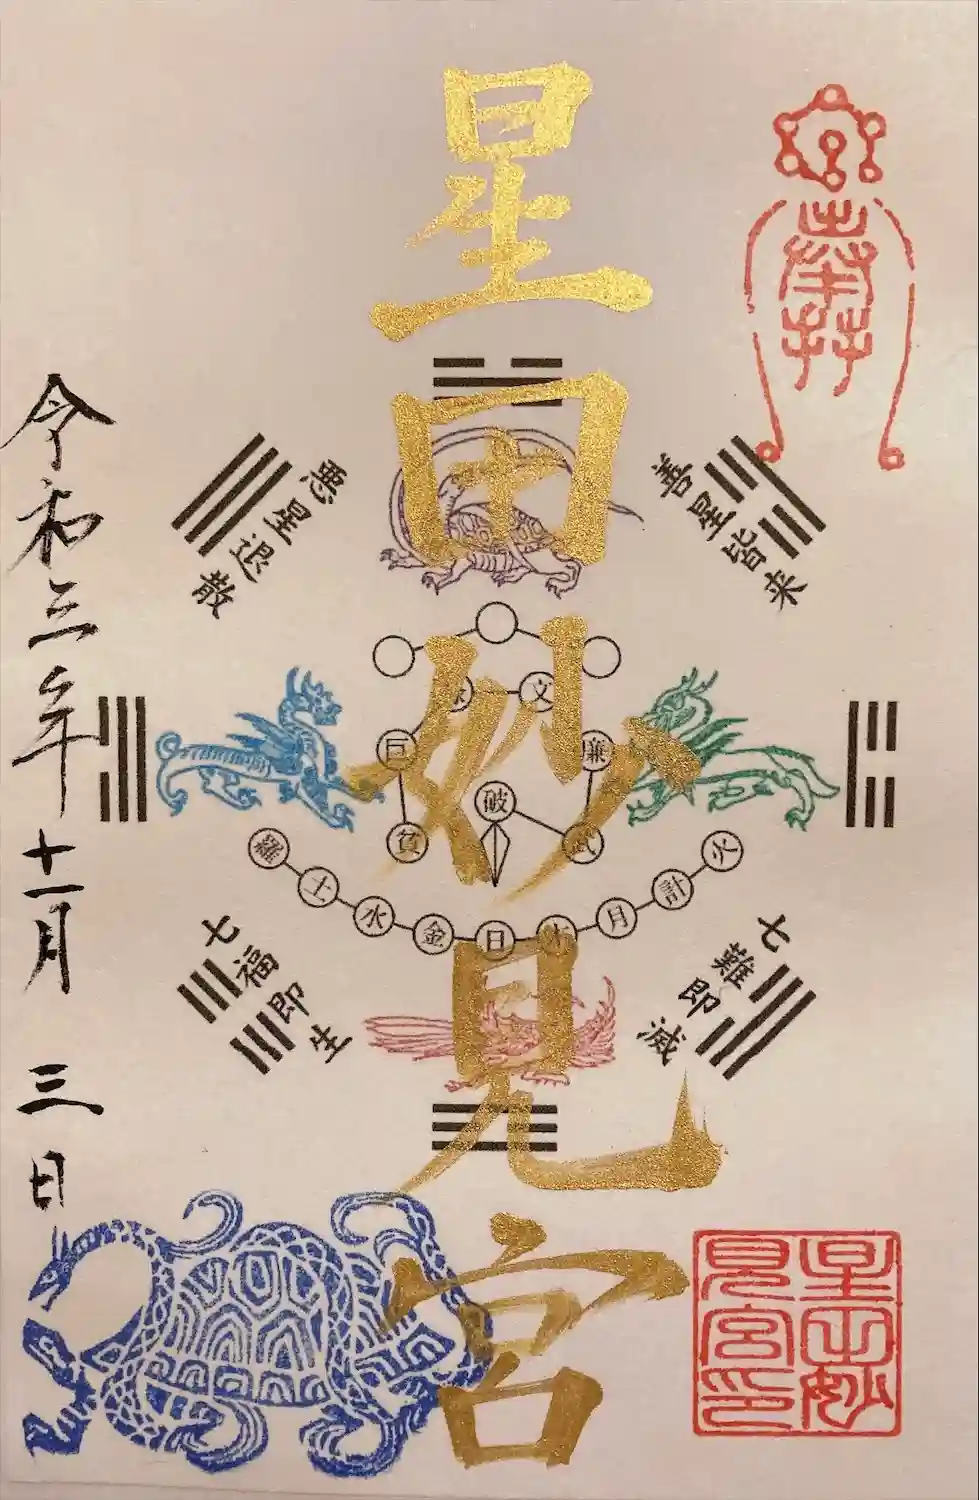 奉拝
星田妙見宮
令和三年十一月三日
善星皆来
悪星退散
七難即滅
七福即生
文
巨
廉
破
貧
武
羅
土
水
金
日
木
月
計
火
星田妙
見宮印